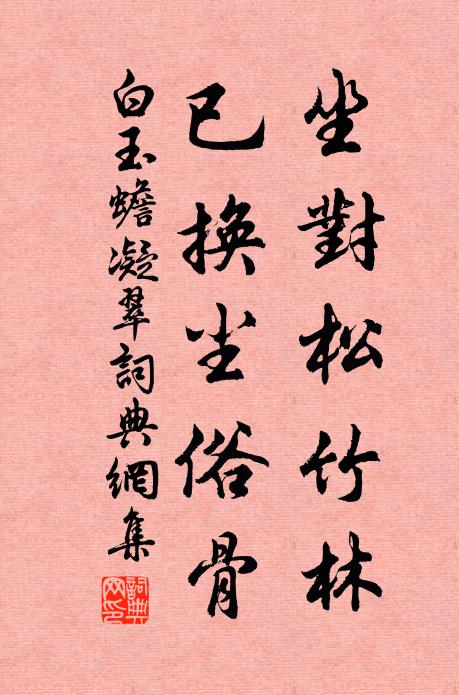 坐對松竹林
已換尘俗骨
白玉蟾凝翠詞典網集
詞典网印